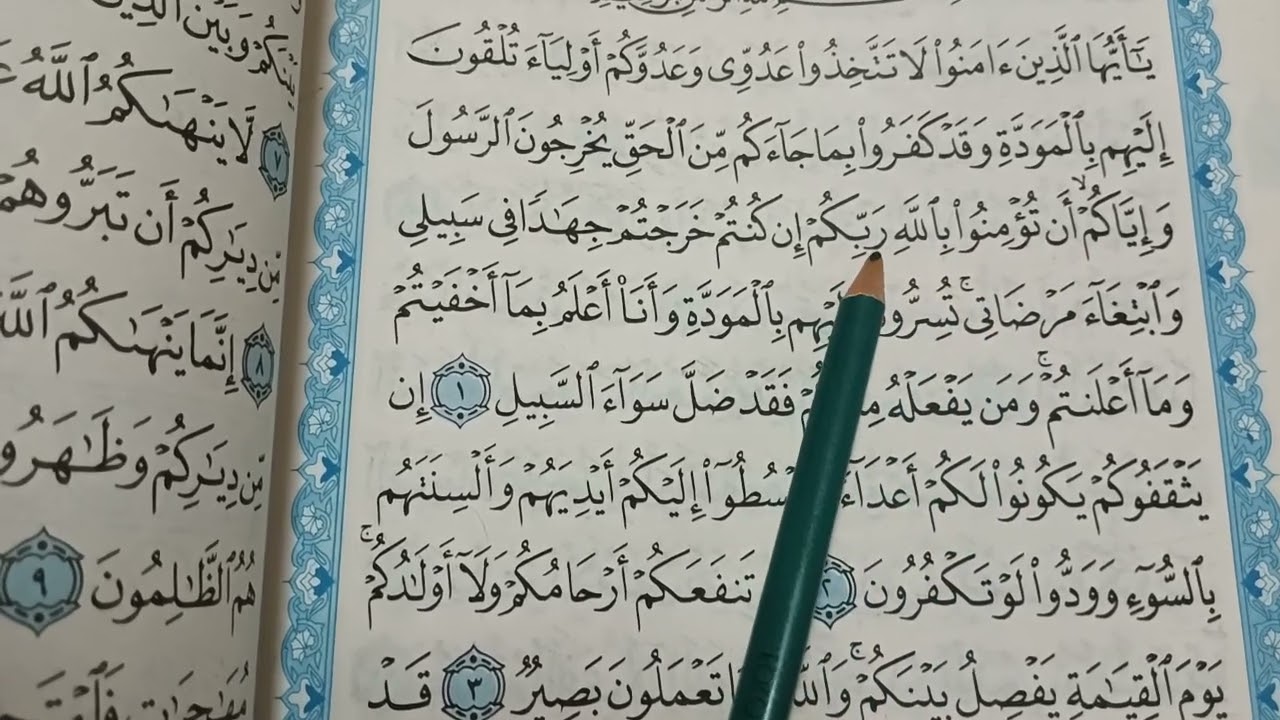 يَٰٓأَيُّهَا ٱلَّذِينَ ءَامَنُوا۟ لَا تَتَّخِذُوا۟ عَدُوِّى وَعَدُوَّكُمْ أَوْلِيَآءَ تُلْقُونَ
إِلَيْهِم بِٱلْمَوَدَّةِ وَقَدْ كَفَرُوا۟ بِمَا جَآءَكُم مِّنَ ٱلْحَقِّ يُخْرِجُونَ ٱلرَّسُولَ
وَإِيَّاكُمْ ۙ أَن تُؤْمِنُوا۟ بِٱللَّهِ رَبِّكُمْ إِن كُنتُمْ خَرَجْتُمْ جِهَٰدًا فِى سَبِيلِى
وَٱبْتِغَآءَ مَرْضَاتِى ۚ تُسِرُّونَ إِلَيْهِم بِٱلْمَوَدَّةِ وَأَنَا۠ أَعْلَمُ بِمَآ أَخْفَيْتُمْ
وَمَآ أَعْلَنتُمْ ۚ وَمَن يَفْعَلْهُ مِنكُمْ فَقَدْ ضَلَّ سَوَآءَ ٱلسَّبِيلِ ١ إِن
يَثْقَفُوكُمْ يَكُونُوا۟ لَكُمْ أَعْدَآءً وَيَبْسُطُوٓا۟ إِلَيْكُمْ أَيْدِيَهُمْ وَأَلْسِنَتَهُم
بِٱلسُّوٓءِ وَوَدُّوا۟ لَوْ تَكْفُرُونَ ٢ تَنفَعَكُمْ أَرْحَامُكُمْ وَلَآ أَوْلَٰدُكُمْ ۚ
يَوْمَ ٱلْقِيَٰمَةِ يَفْصِلُ بَيْنَكُمْ ۚ وَٱللَّهُ بِمَا تَعْمَلُونَ بَصِيرٌ ٣ قَدْ
بَيْنَكُمْ وَبَيْنَ ٱلَّذِينَ
٧ لَّا يَنْهَىٰكُمُ ٱللَّهُ
مِّن دِيَٰرِكُمْ أَن تَبَرُّوهُمْ
٨ إِنَّمَا يَنْهَىٰكُمُ ٱللَّهُ
مِّن دِيَٰرِكُمْ وَظَٰهَرُوا۟
هُمُ ٱلظَّٰلِمُونَ ٩